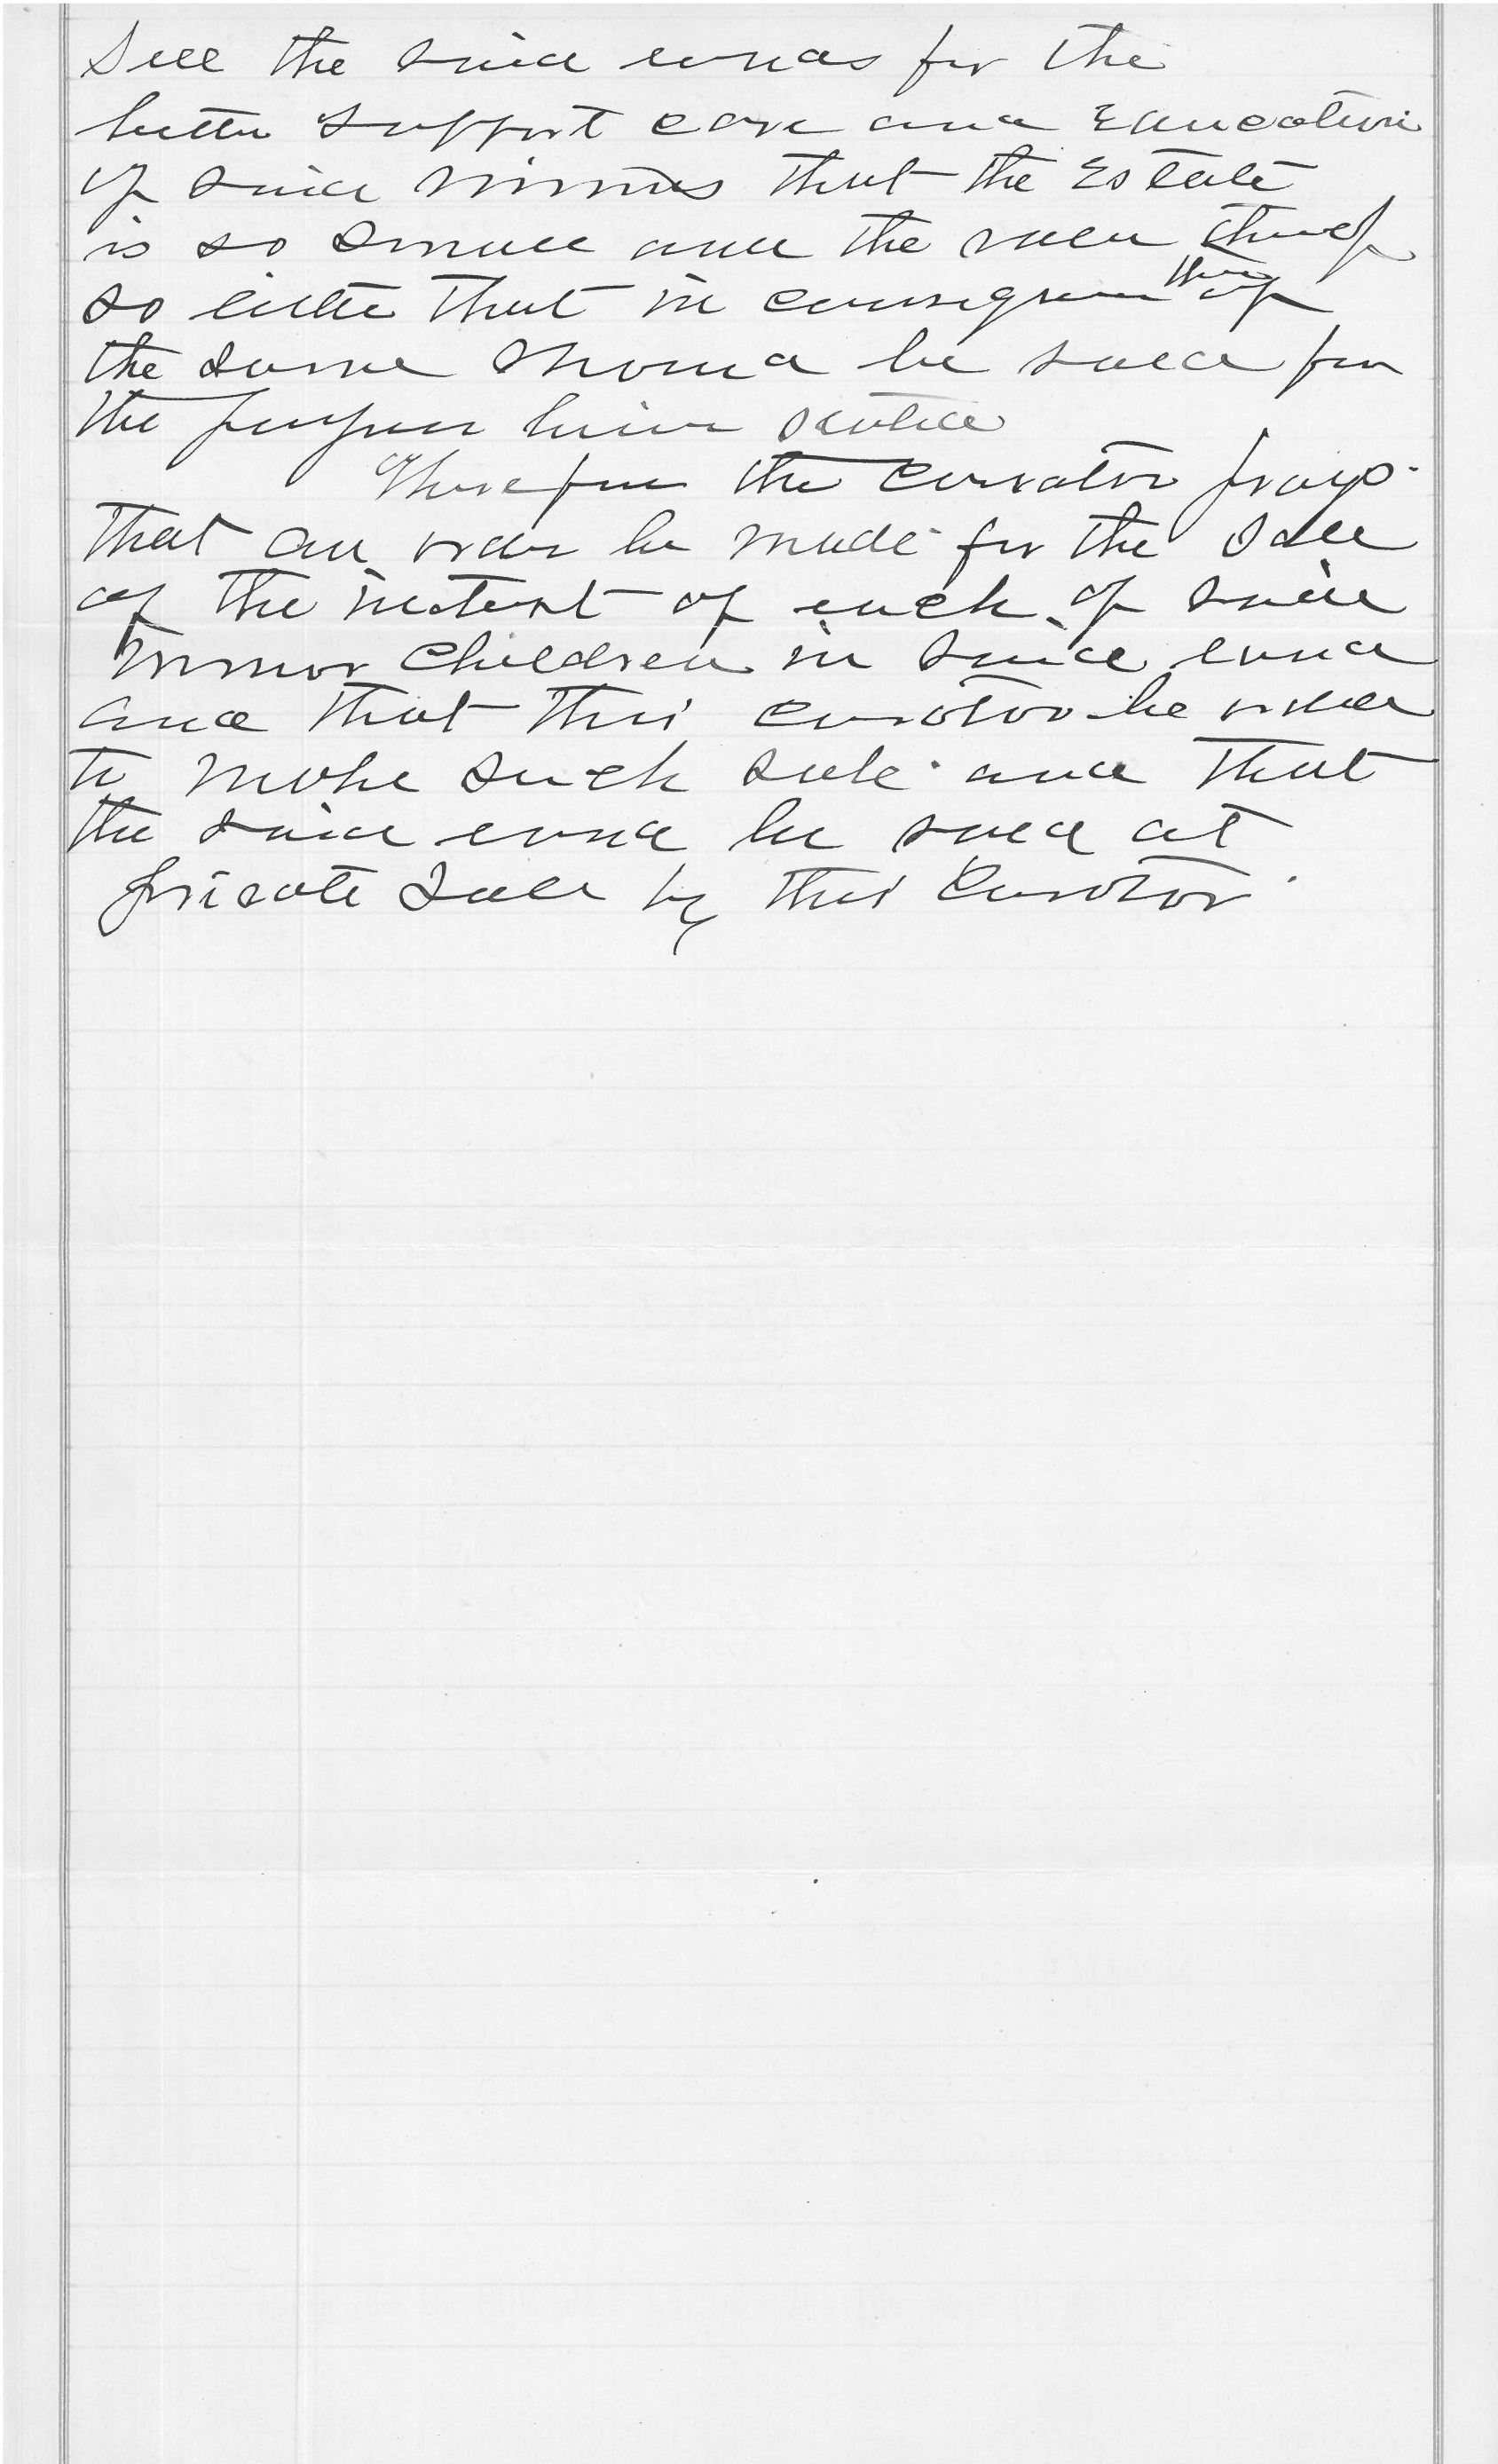 Sell the said lands for the
better support care and Education
of said minors that the Estate
is so small and the value thereof
so little that in consequence thereof
the same should be sold for
the purposes herein stated
Therefore the Curator prays
that an order be made for the Sale
of the interest of each of said
minor children in said land
and that this curator be ordered
to make such sale and that
the said land be sold at
private Sale by this Curator.